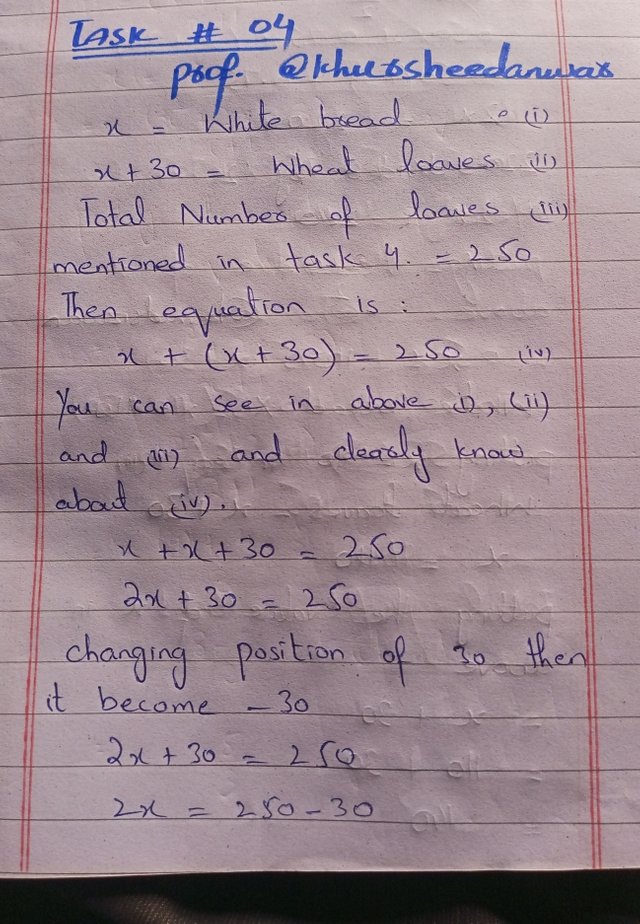 TASK # 04
prof. @khursheedanwar
x = White bread (i)
x+30 = Wheat loaves (ii)
Total Number of loaves (iii)
mentioned in task 4. = 250
Then equation is :
x + (x+30) = 250 (iv)
You can see in above (i), (ii)
and (iii) and clearly know
about (iv).
x + x + 30 = 250
2x + 30 = 250
changing position of 30 then
it become -30
2x + 30 = 250
2x = 250 - 30